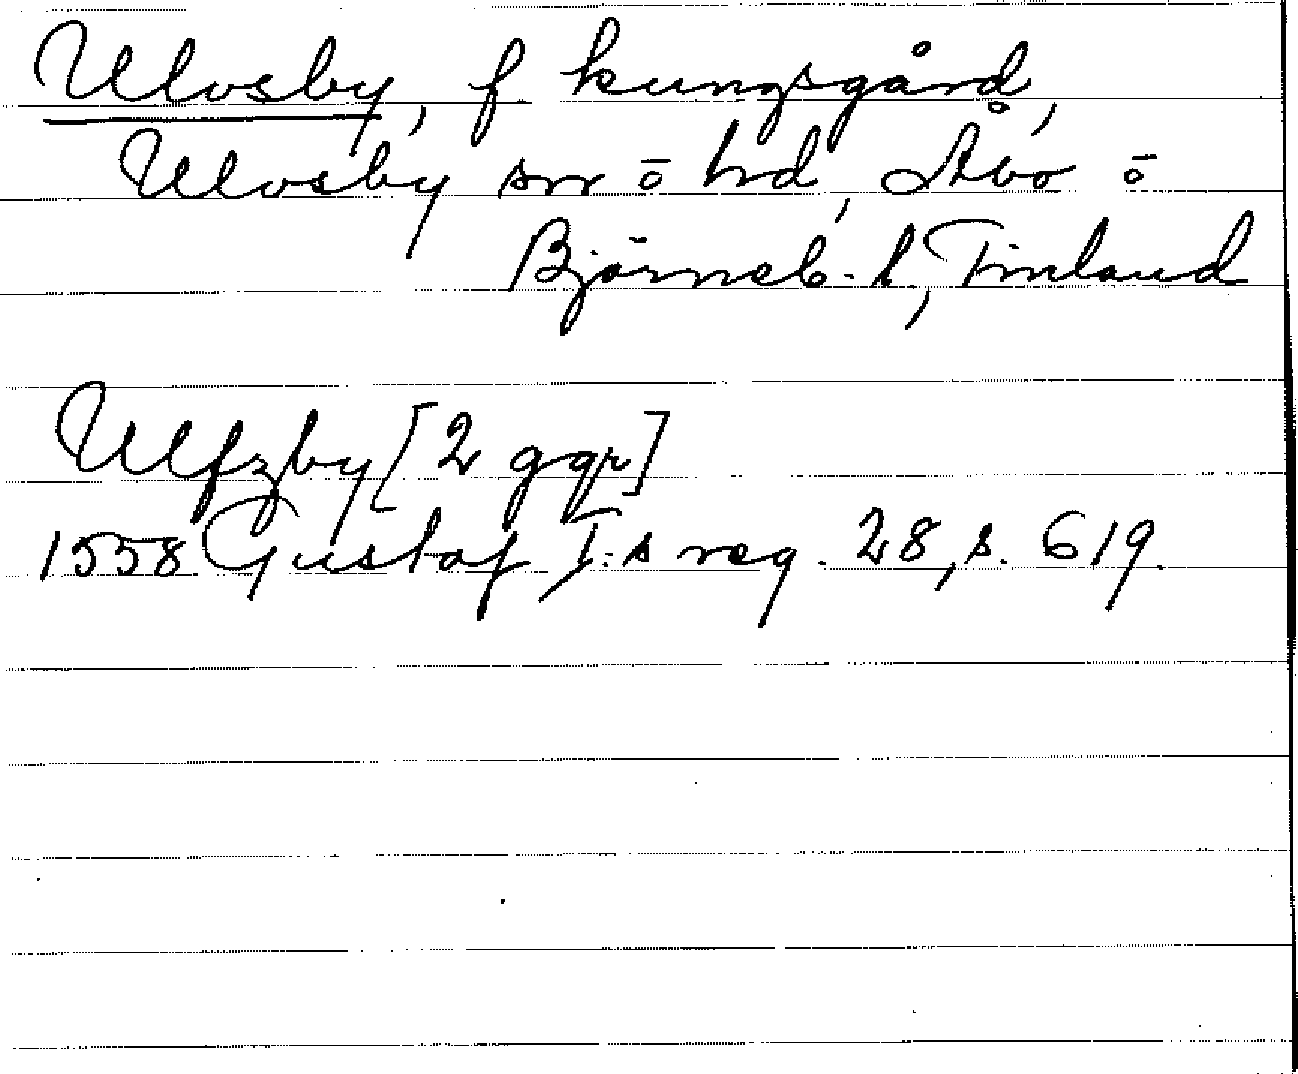 Ulvsby, f kungsgård,
Ulvsby sn o hd, Åbo o
Björneb. l, Finland
Ulfzby [2 ggr]
1558 Gustaf I:s reg. 28, s. 619.